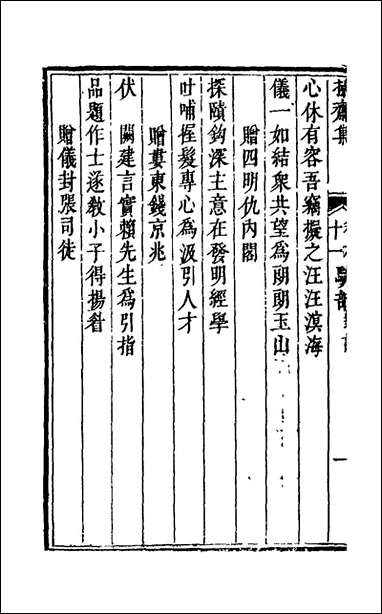 齋集
十一
一
心休有容吾竊擬之汪汪溟海
儀一如結衆共望為朗朗玉山
贈四明仇內閣
探賾鈎深主意在發明經學
吐哺握髮專心為汲引人才
贈婁東錢京兆
伏闕建言實賴先生為引指
品題作士遂敎小子得揚眉
贈儀封張司徒